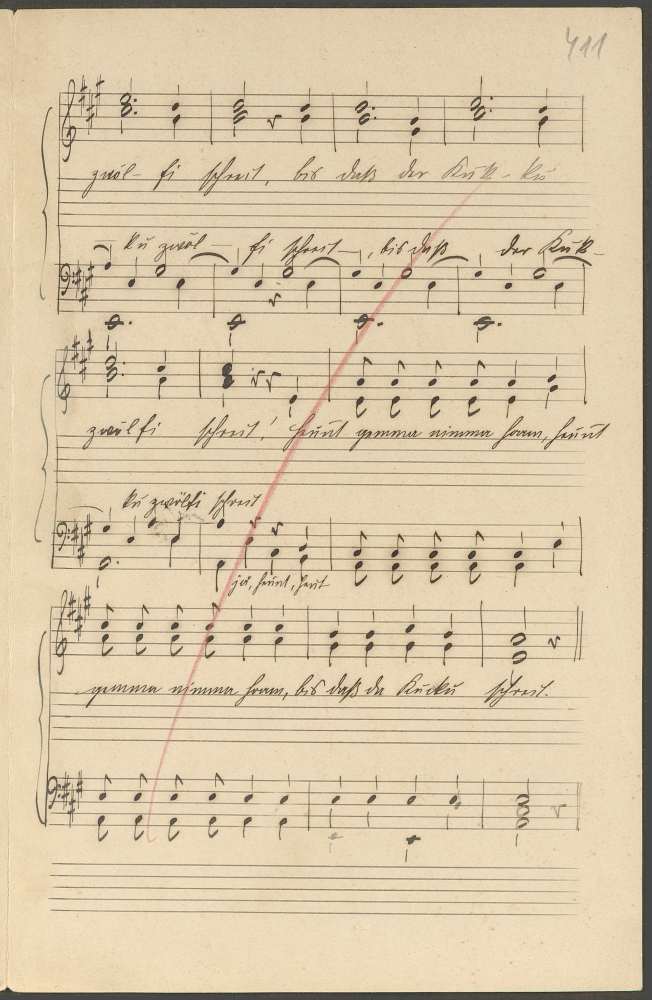 411
zwöl- fi schreit, bis daß der Kuk - ku
ku zwöl - fi schreit -, bis daß der Kuk-
zwölfi schreit! heunt gemma nimma hoam, heunt
ku zwölfi schreit
ja, heunt, heut
gemma nimma hoam, bis daß da Kucku schreit.